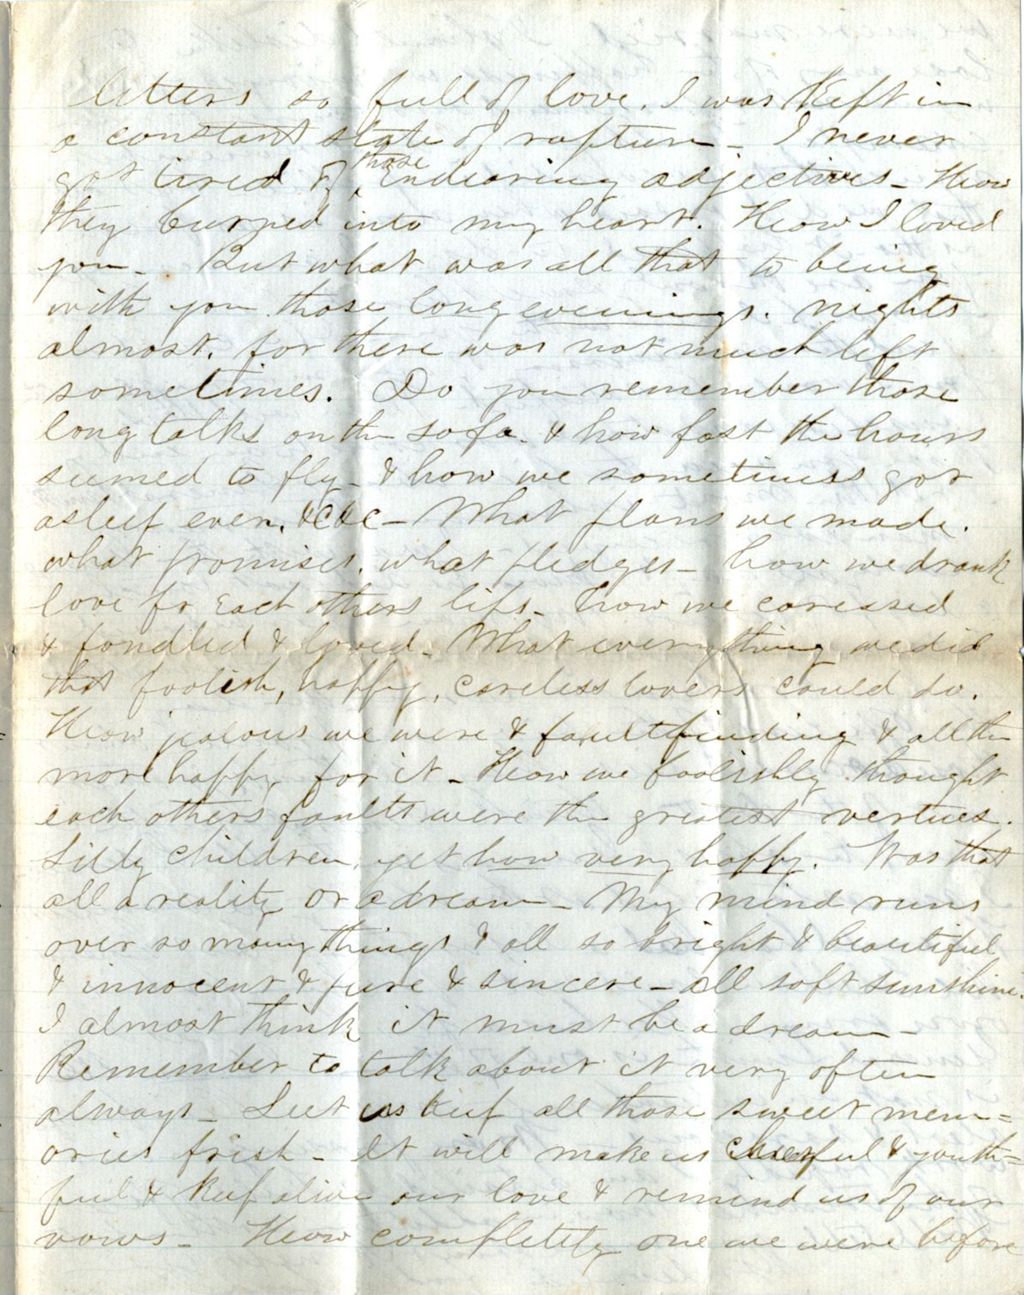 letters so full of love. I was kept in
a constant state of rapture – I never
got tired of those endearing adjectives – How
they burned into my heart. How I loved
you – But what was all that to being
with you those long evenings. nights
almost. for there was not much left
sometimes. Do you remember those
long talks on the sofa. & how fast the hours
seemed to fly – & how we sometimes got
asleep even. &c &c – What plans we made.
what promises. what pledges – how we drank
love fr each others lips – how we caressed
& fondled & loved – What everything we did
that foolish, happy, careless lovers could do.
How jealous we were & faultfinding & all the
more happy for it – How we foolishly thought
each others faults were the greatest vertues.
Silly children, yet how very happy. Was that
all a reality or a dream – My mind runs
over so many things & all so bright & beautiful
& innocent & pure & sincere – all soft sunshine.
I almost think it must be a dream –
Remember to talk about it very often
always – Let us keep all those sweet mem=
ories fresh – It will make us cheerful & youth=
ful & keep alive our love & remind us of our
vows – How completely one we were before